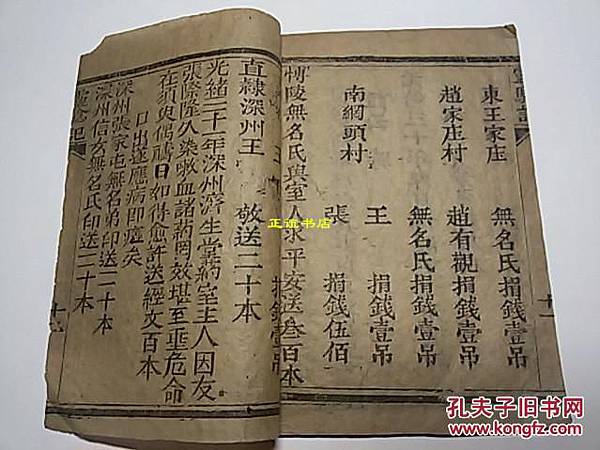 東王家庄 無名氏捐錢壹吊
趙家庄村 趙有觀捐錢壹吊
無名氏捐錢壹吊
南綱頭村 王 捐錢壹吊
張 捐錢伍佰
博陵無名氏與室人求平安送叁百本
王 捐錢壹吊
直隸深州王 敬送二十本
光緒二十一年深州濟生堂藥室主人因友
張隆隆久染嗽血諸药罔效堪至垂危命
在須臾偶禱曰如得愈許送經文百本
口出遂應病即痊矣
深州張家屯無名弟印送二十本
深州信女無名氏印送二十本
十二
正谊书店
孔夫子旧书网
www.kongfz.com